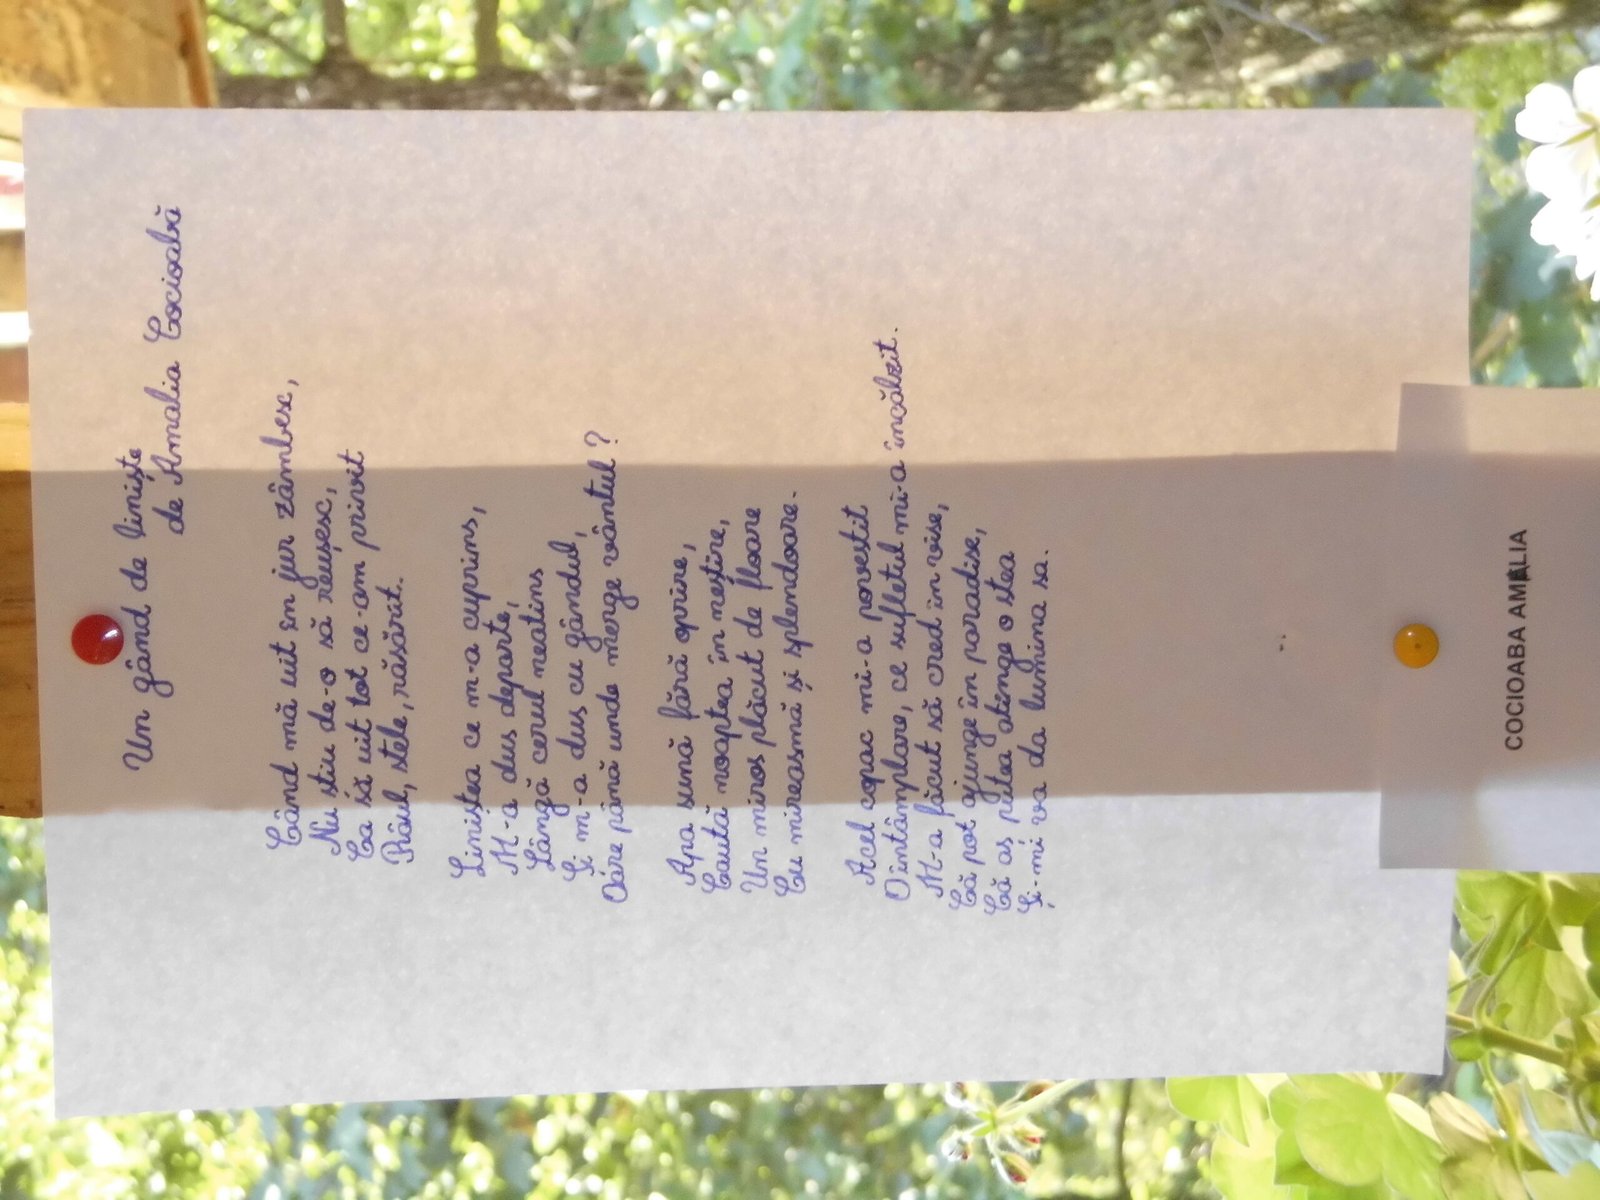 Un gând de liniște
de Amalia Cocioabă
Când mă uit în jur zâmbesc,
Nu știu de-o să reușesc,
Ca să uit tot ce-am privit
Râul, stele, răsărit.
Liniștea ce m-a cuprins,
M-a dus departe,
Lângă cerul neatins
Și m-a dus cu gândul,
Oare până unde merge vântul?
Apa sună fără oprire,
Caută noaptea în neștire,
Un miros plăcut de floare
Cu mireasmă și splendoare.
Acel copac mi-a povestit
O întâmplare, ce sufletul mi-a încălzit.
M-a făcut să cred în vise,
Că pot ajunge în paradise,
Că aș putea atinge o stea
Și-mi va da lumina sa.
COCIOABA AMALIA